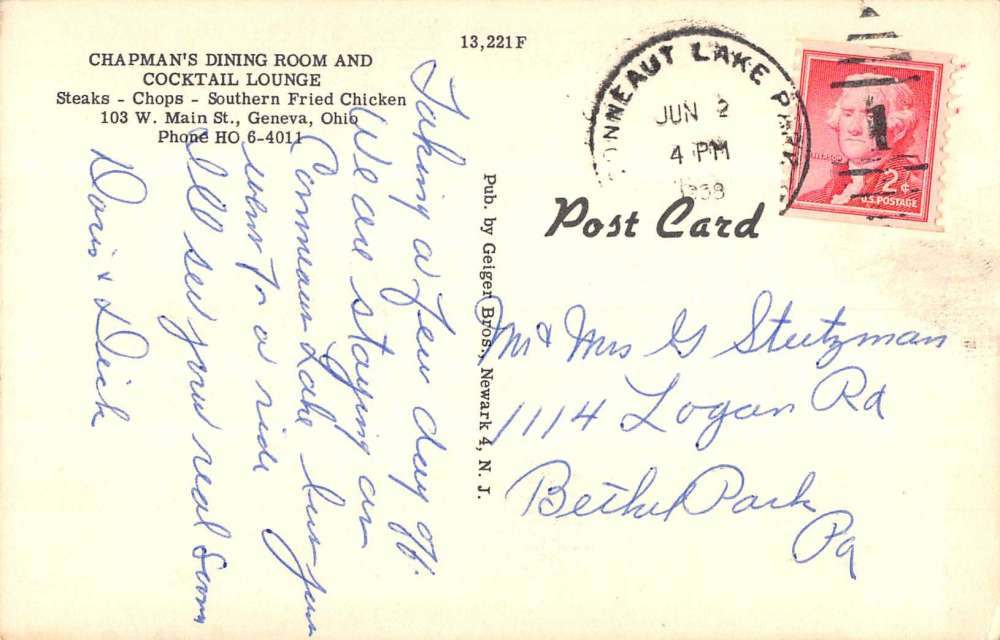 13,221F
CHAPMAN'S DINING ROOM AND
COCKTAIL LOUNGE
Steaks - Chops - Southern Fried Chicken
103 W. Main St., Geneva, Ohio
Phone HO 6-4011
Taking a few day off.
We are staying at
Conneaut Lake but just
went for a ride
I'll see you real soon
Doris & Dick
Pub. by Geiger Bros., Newark 4, N. J.
CONNEAUT LAKE PARK
JUN 2
4 PM
1958
2¢
U.S. POSTAGE
Post Card
Mr & Mrs G Stutzman
1114 Logan Rd
Bethel Park
Pa